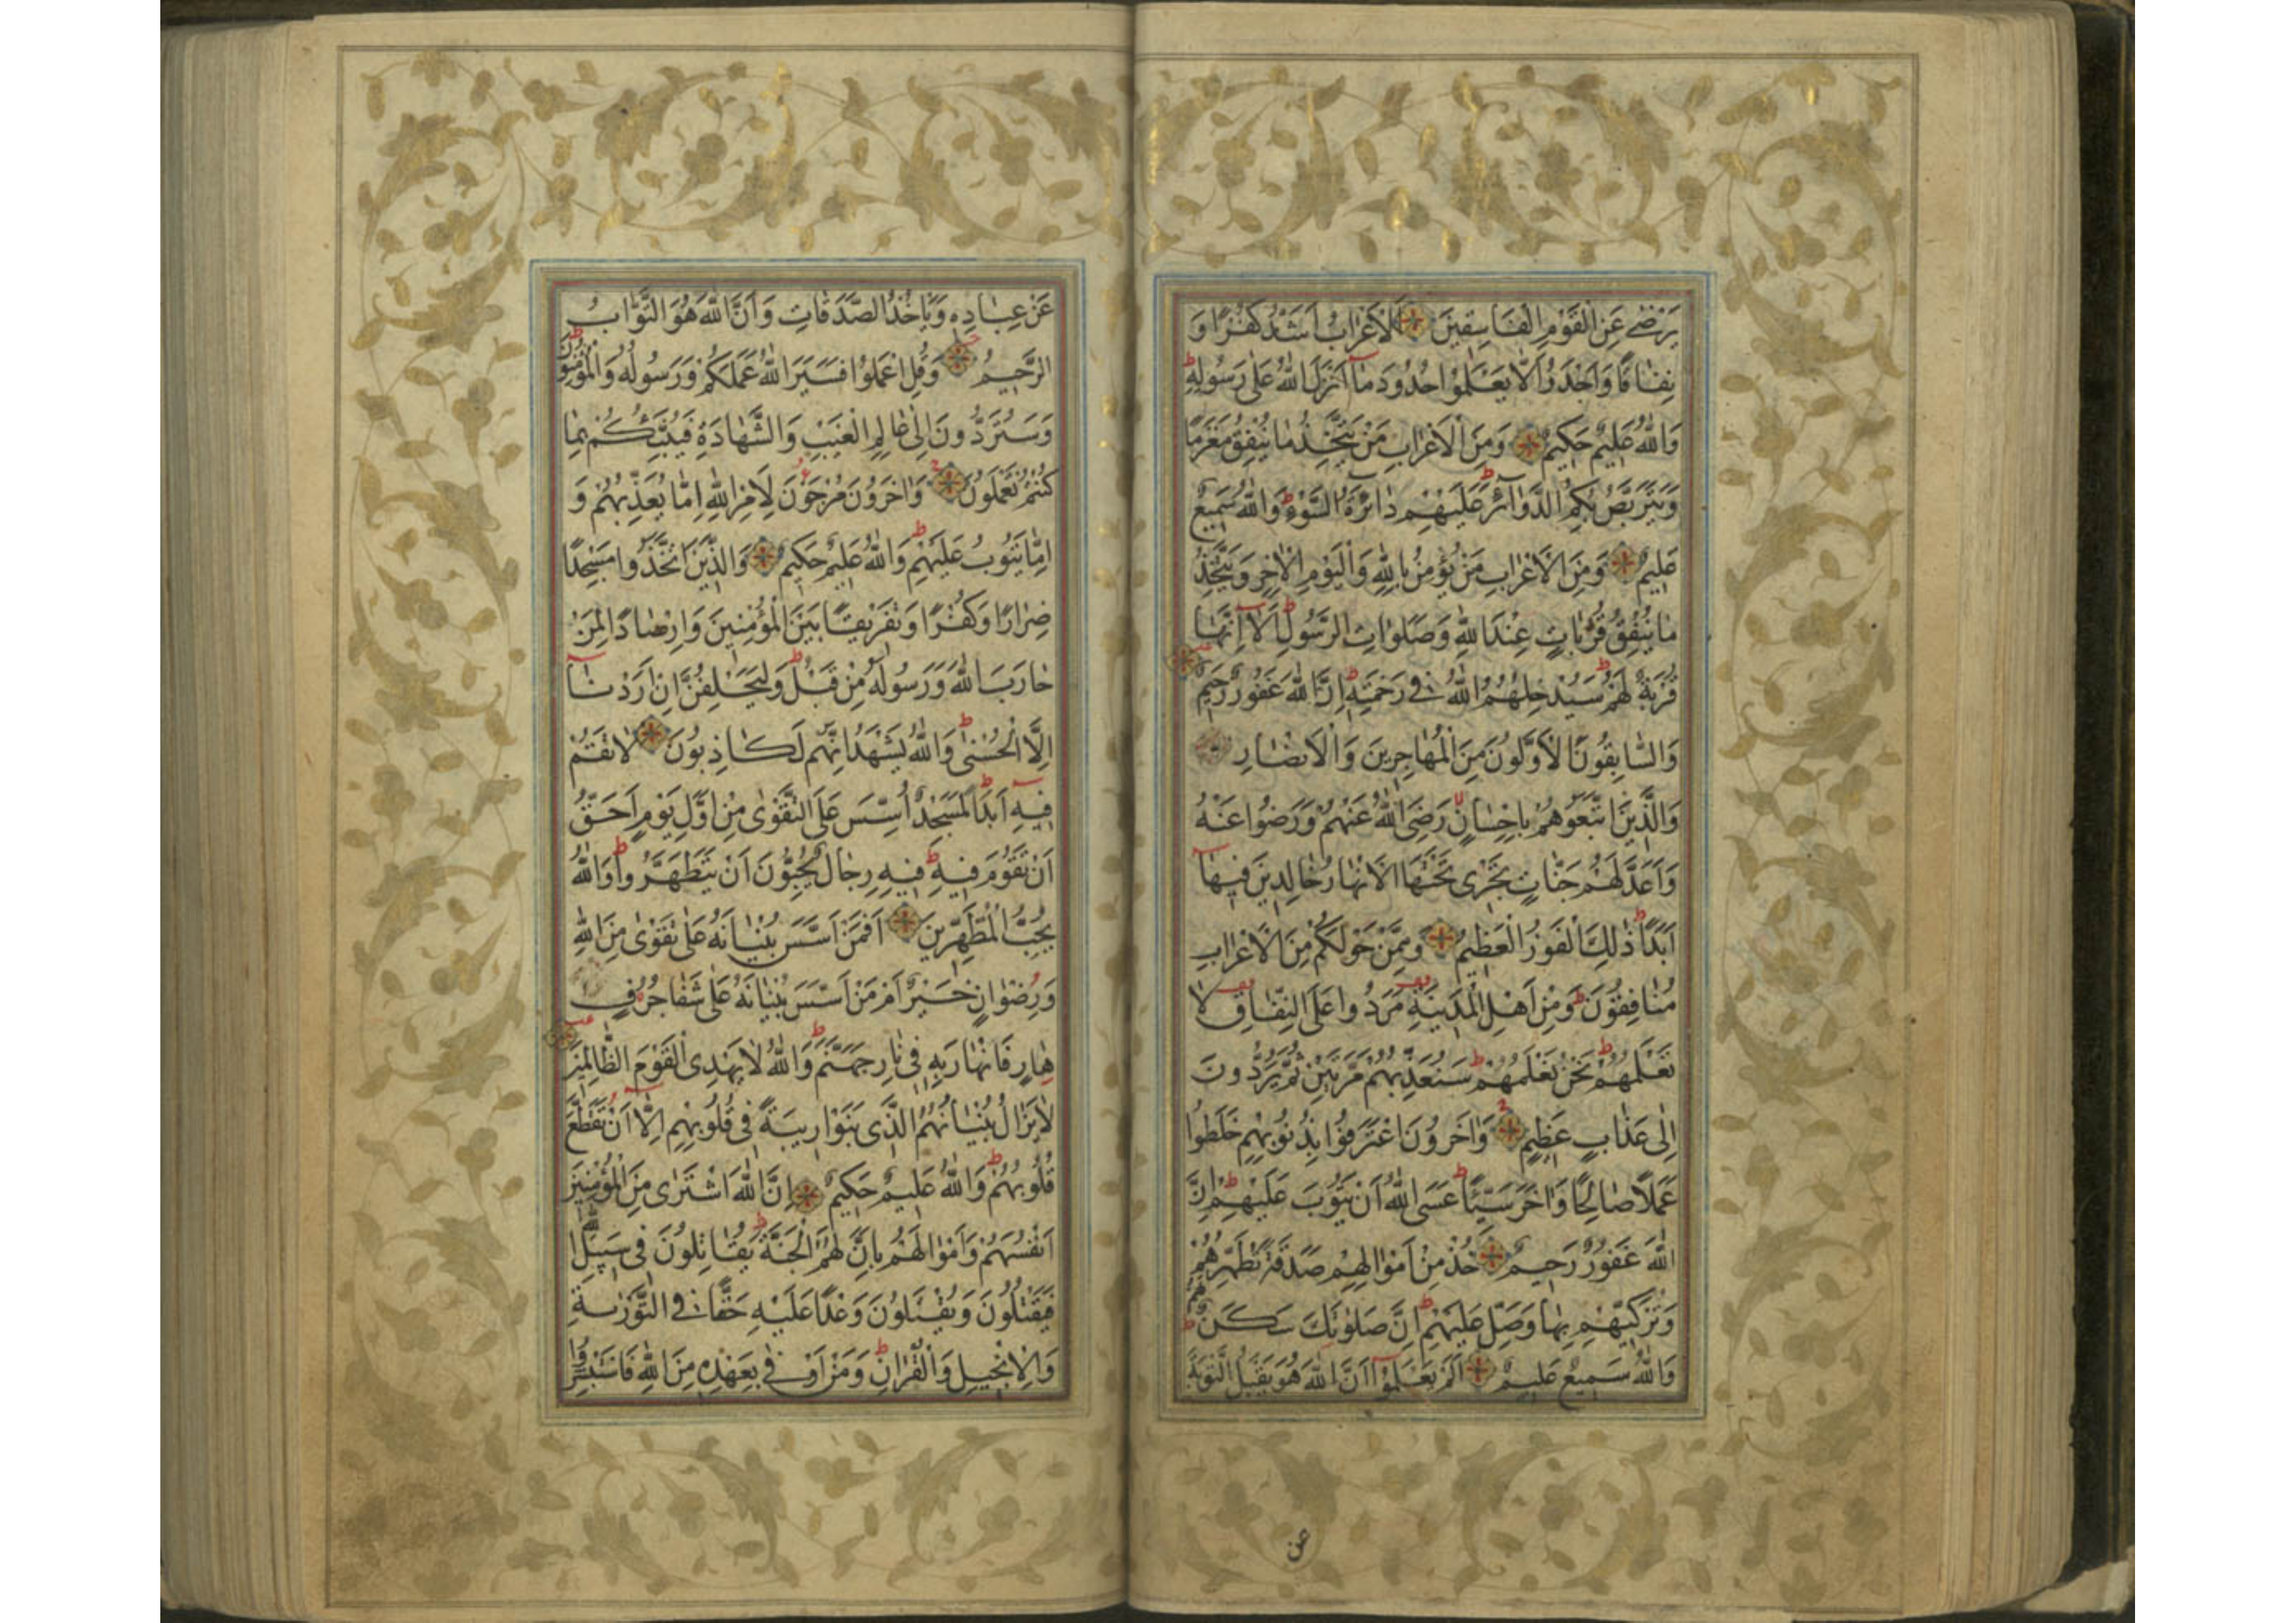 يَرْضٰى عَنِ الْقَوْمِ الْفَاسِقِينَ اَلْاَعْرَابُ اَشَدُّ كُفْرًا وَ
نِفَاقًا وَاَجْدَرُ اَلَّا يَعْلَمُوا حُدُودَ مَا اَنْزَلَ اللهُ عَلٰى رَسُولِهِ
وَاللهُ عَلِيمٌ حَكِيمٌ وَمِنَ الْاَعْرَابِ مَنْ يَتَّخِذُ مَا يُنْفِقُ مَغْرَمًا
وَيَتَرَبَّصُ بِكُمُ الدَّوَآئِرَ عَلَيْهِمْ دَآئِرَةُ السَّوْءِ وَاللهُ سَمِيعٌ
عَلِيمٌ وَمِنَ الْاَعْرَابِ مَنْ يُؤْمِنُ بِاللهِ وَالْيَوْمِ الْاٰخِرِ وَيَتَّخِذُ
مَا يُنْفِقُ قُرُبَاتٍ عِنْدَ اللهِ وَصَلَوَاتِ الرَّسُولِ اَلَا اِنَّهَا
قُرْبَةٌ لَهُمْ سَيُدْخِلُهُمُ اللهُ فِى رَحْمَتِهِ اِنَّ اللهَ غَفُورٌ رَحِيمٌ
وَالسَّابِقُونَ الْاَوَّلُونَ مِنَ الْمُهَاجِرِينَ وَالْاَنْصَارِ
وَالَّذِينَ اتَّبَعُوهُمْ بِاِحْسَانٍ رَضِىَ اللهُ عَنْهُمْ وَرَضُوا عَنْهُ
وَاَعَدَّ لَهُمْ جَنَّاتٍ تَجْرِى تَحْتَهَا الْاَنْهَارُ خَالِدِينَ فِيهَا
اَبَدًا ذٰلِكَ الْفَوْزُ الْعَظِيمُ وَمِمَّنْ حَوْلَكُمْ مِنَ الْاَعْرَابِ
مُنَافِقُونَ وَمِنْ اَهْلِ الْمَدِينَةِ مَرَدُوا عَلَى النِّفَاقِ لَا
تَعْلَمُهُمْ نَحْنُ نَعْلَمُهُمْ سَنُعَذِّبُهُمْ مَرَّتَيْنِ ثُمَّ يُرَدُّونَ
اِلٰى عَذَابٍ عَظِيمٍ وَاٰخَرُونَ اعْتَرَفُوا بِذُنُوبِهِمْ خَلَطُوا
عَمَلًا صَالِحًا وَاٰخَرَ سَيِّئًا عَسَى اللهُ اَنْ يَتُوبَ عَلَيْهِمْ اِنَّ
اللهَ غَفُورٌ رَحِيمٌ خُذْ مِنْ اَمْوَالِهِمْ صَدَقَةً تُطَهِّرُهُمْ
وَتُزَكِّيهِمْ بِهَا وَصَلِّ عَلَيْهِمْ اِنَّ صَلٰوتَكَ سَكَنٌ لَهُمْ
وَاللهُ سَمِيعٌ عَلِيمٌ اَلَمْ يَعْلَمُوا اَنَّ اللهَ هُوَ يَقْبَلُ التَّوْبَةَ
عَنْ عِبَادِهِ وَيَاْخُذُ الصَّدَقَاتِ وَاَنَّ اللهَ هُوَ التَّوَّابُ
الرَّحِيمُ وَقُلِ اعْمَلُوا فَسَيَرَى اللهُ عَمَلَكُمْ وَرَسُولُهُ وَالْمُؤْمِنُونَ
وَسَتُرَدُّونَ اِلٰى عَالِمِ الْغَيْبِ وَالشَّهَادَةِ فَيُنَبِّئُكُمْ بِمَا
كُنْتُمْ تَعْمَلُونَ وَاٰخَرُونَ مُرْجَوْنَ لِاَمْرِ اللهِ اِمَّا يُعَذِّبُهُمْ وَ
اِمَّا يَتُوبُ عَلَيْهِمْ وَاللهُ عَلِيمٌ حَكِيمٌ وَالَّذِينَ اتَّخَذُوا مَسْجِدًا
ضِرَارًا وَكُفْرًا وَتَفْرِيقًا بَيْنَ الْمُؤْمِنِينَ وَاِرْصَادًا لِمَنْ
حَارَبَ اللهَ وَرَسُولَهُ مِنْ قَبْلُ وَلَيَحْلِفُنَّ اِنْ اَرَدْنَا
اِلَّا الْحُسْنٰى وَاللهُ يَشْهَدُ اِنَّهُمْ لَكَاذِبُونَ لَا تَقُمْ
فِيهِ اَبَدًا لَمَسْجِدٌ اُسِّسَ عَلَى التَّقْوٰى مِنْ اَوَّلِ يَوْمٍ اَحَقُّ
اَنْ تَقُومَ فِيهِ فِيهِ رِجَالٌ يُحِبُّونَ اَنْ يَتَطَهَّرُوا وَاللهُ
يُحِبُّ الْمُطَّهِّرِينَ اَفَمَنْ اَسَّسَ بُنْيَانَهُ عَلٰى تَقْوٰى مِنَ اللهِ
وَرِضْوَانٍ خَيْرٌ اَمْ مَنْ اَسَّسَ بُنْيَانَهُ عَلٰى شَفَا جُرُفٍ
هَارٍ فَانْهَارَ بِهِ فِى نَارِ جَهَنَّمَ وَاللهُ لَا يَهْدِى الْقَوْمَ الظَّالِمِينَ
لَا يَزَالُ بُنْيَانُهُمُ الَّذِى بَنَوْا رِيبَةً فِى قُلُوبِهِمْ اِلَّا اَنْ تَقَطَّعَ
قُلُوبُهُمْ وَاللهُ عَلِيمٌ حَكِيمٌ اِنَّ اللهَ اشْتَرٰى مِنَ الْمُؤْمِنِينَ
اَنْفُسَهُمْ وَاَمْوَالَهُمْ بِاَنَّ لَهُمُ الْجَنَّةَ يُقَاتِلُونَ فِى سَبِيلِ اللهِ
فَيَقْتُلُونَ وَيُقْتَلُونَ وَعْدًا عَلَيْهِ حَقًّا فِى التَّوْرٰيةِ
وَالْاِنْجِيلِ وَالْقُرْاٰنِ وَمَنْ اَوْفٰى بِعَهْدِهِ مِنَ اللهِ فَاسْتَبْشِرُوا